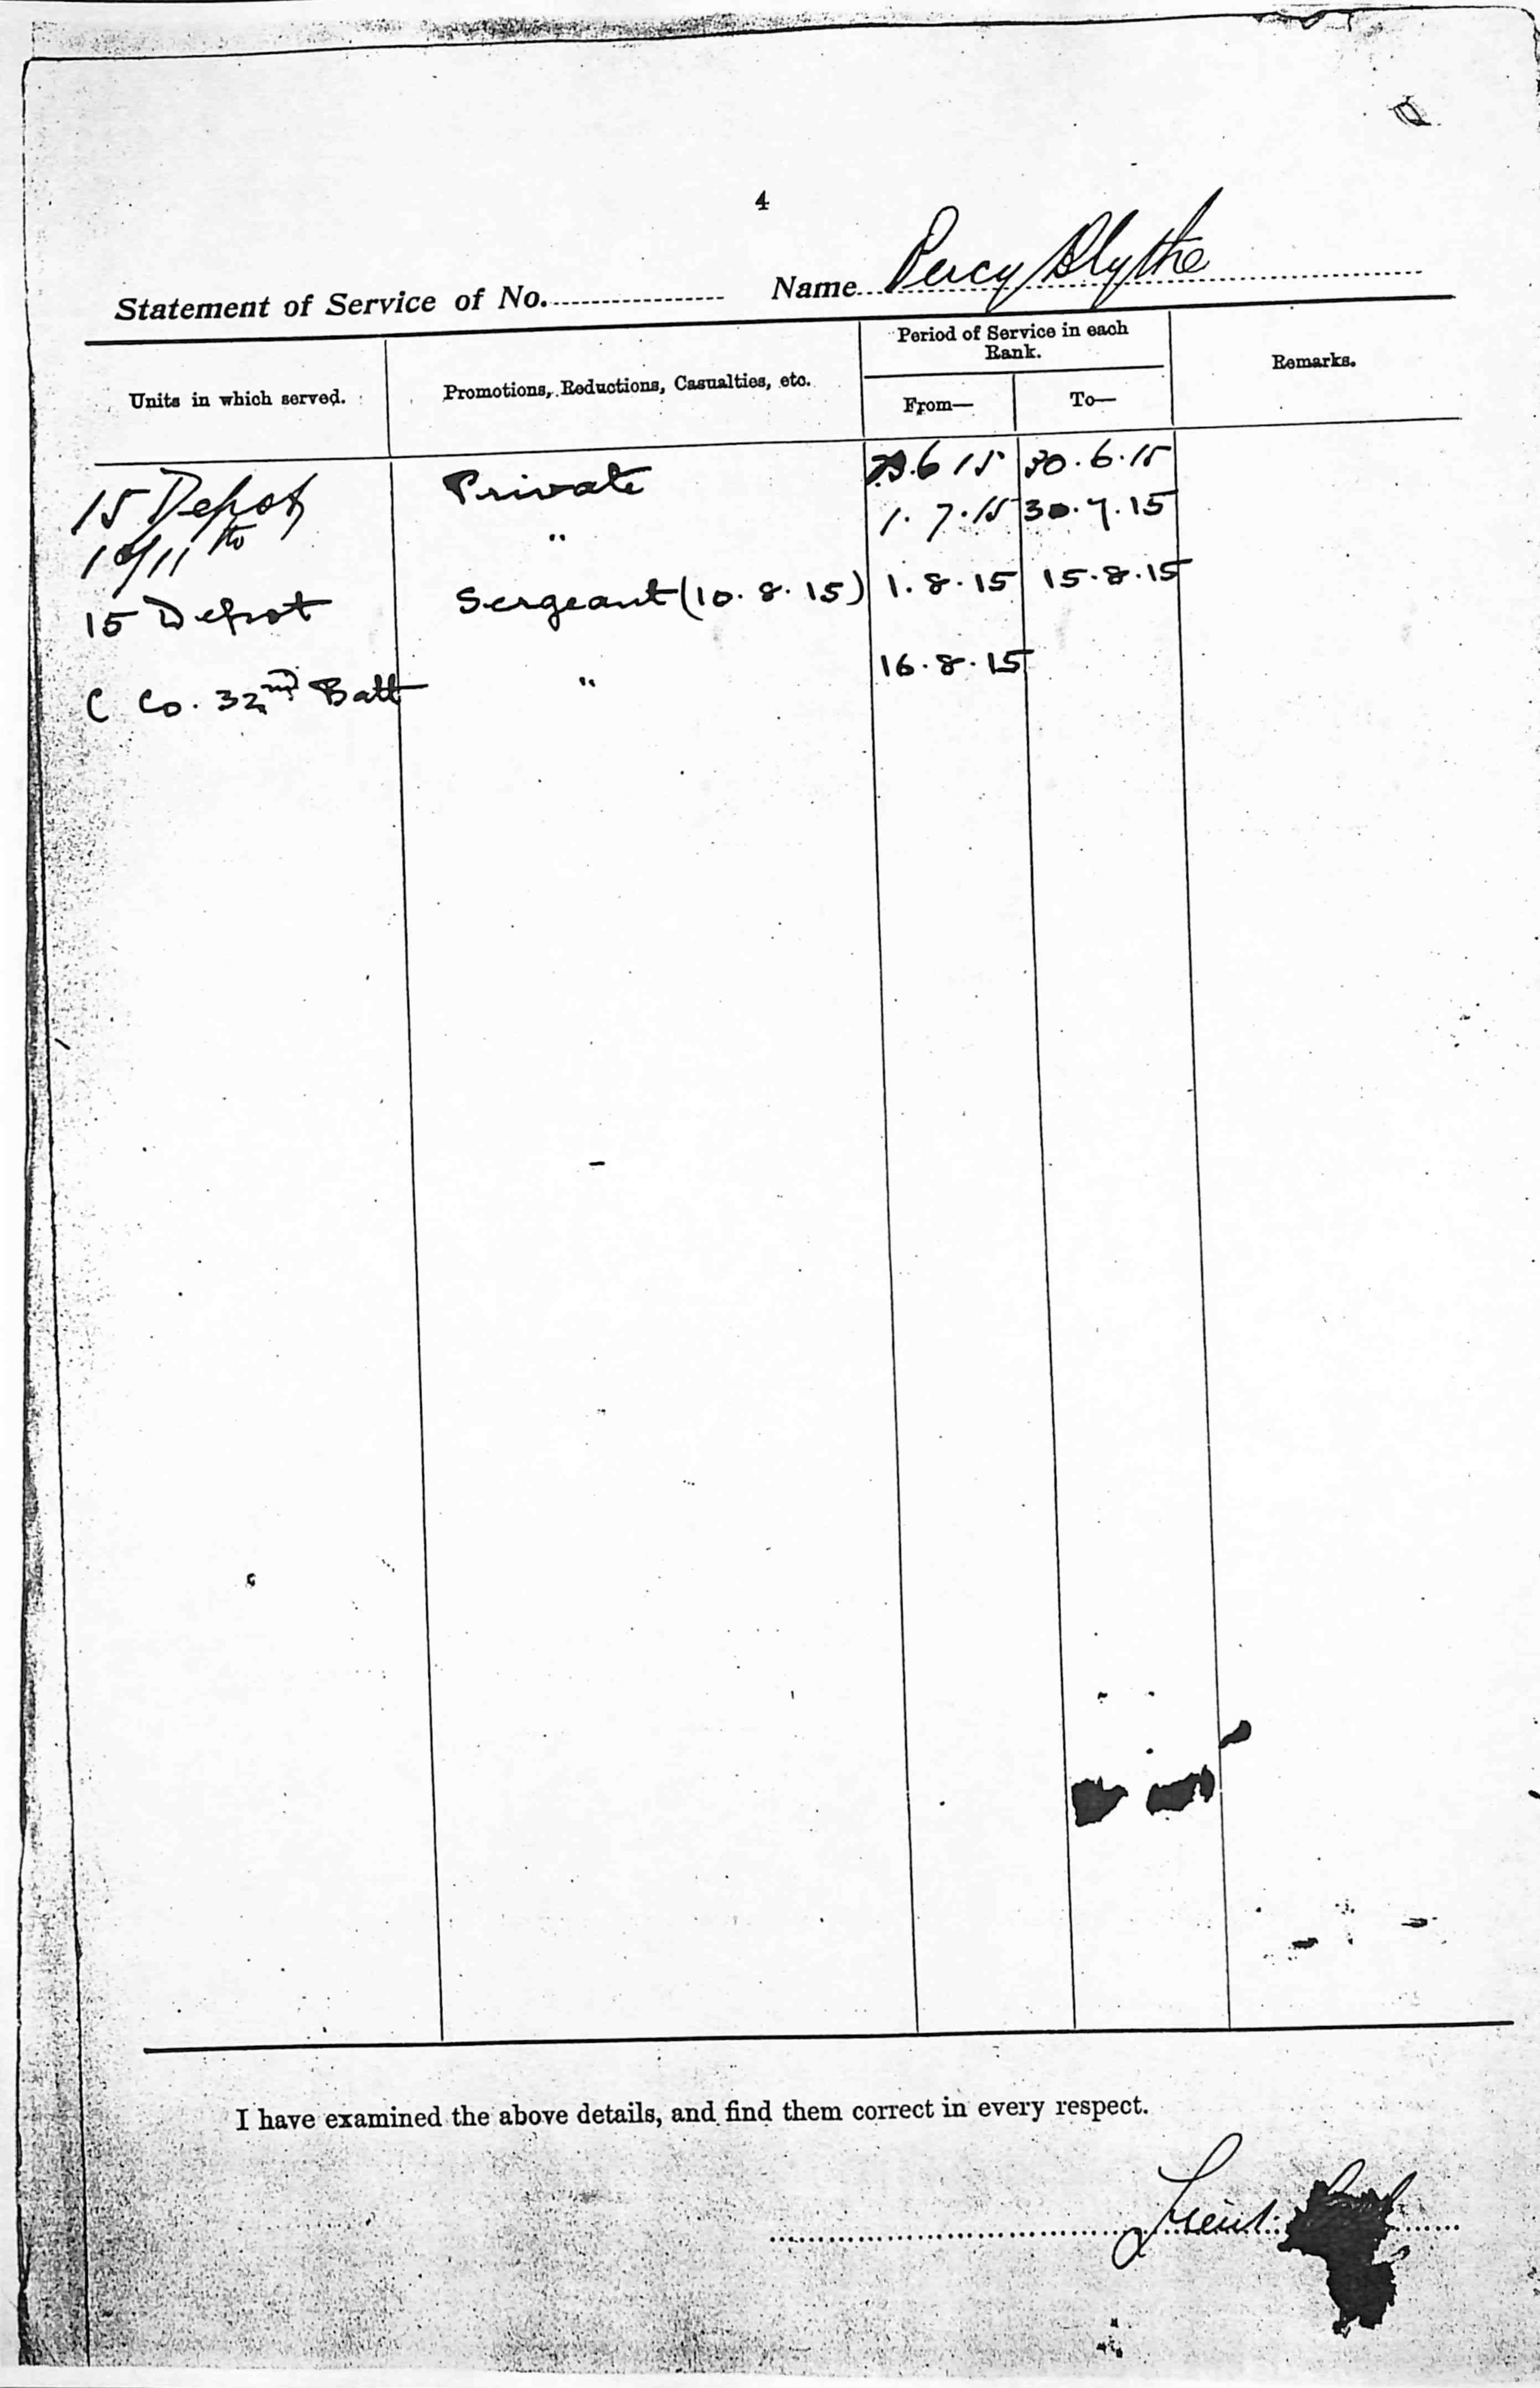 4
Statement of Service of No. Name Percy Blythe
Units in which served. Promotions, Reductions, Casualties, etc. Period of Service in each Rank. From— To— Remarks.
15 Depot Private .6 15 30.6.15
10/11th " 1.7.15 30.7.15
15 Depot Sergeant (10.8.15) 1.8.15 15.8.15
C Co. 32nd Batt " 16.8.15
I have examined the above details, and find them correct in every respect.
Lieut.